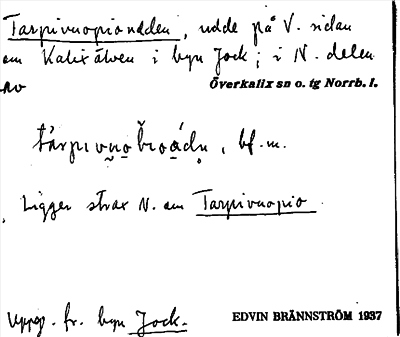 Tarpivuopioudden, udde på V. sidan
om Kalixälven i byn Jock; i N. delen
av
Överkalix sn o. tg Norrb. l.
bf. m.
Ligger strax N. om Tarpivuopio
Uppg. fr. byn Jock.
EDVIN BRÄNNSTRÖM 1937